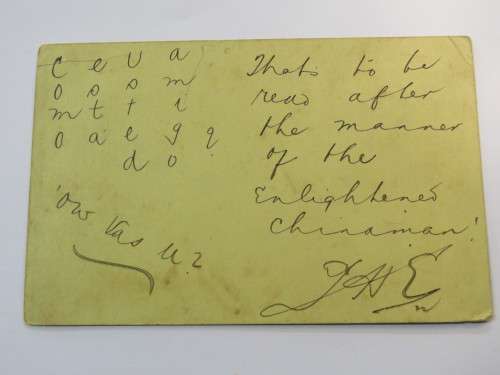 C e U a
o s s m
m t t i
o a e g ?
d o
'Ow Vas U?
Thats to be
read after
the manner
of the
Enlightened
Chinaman!